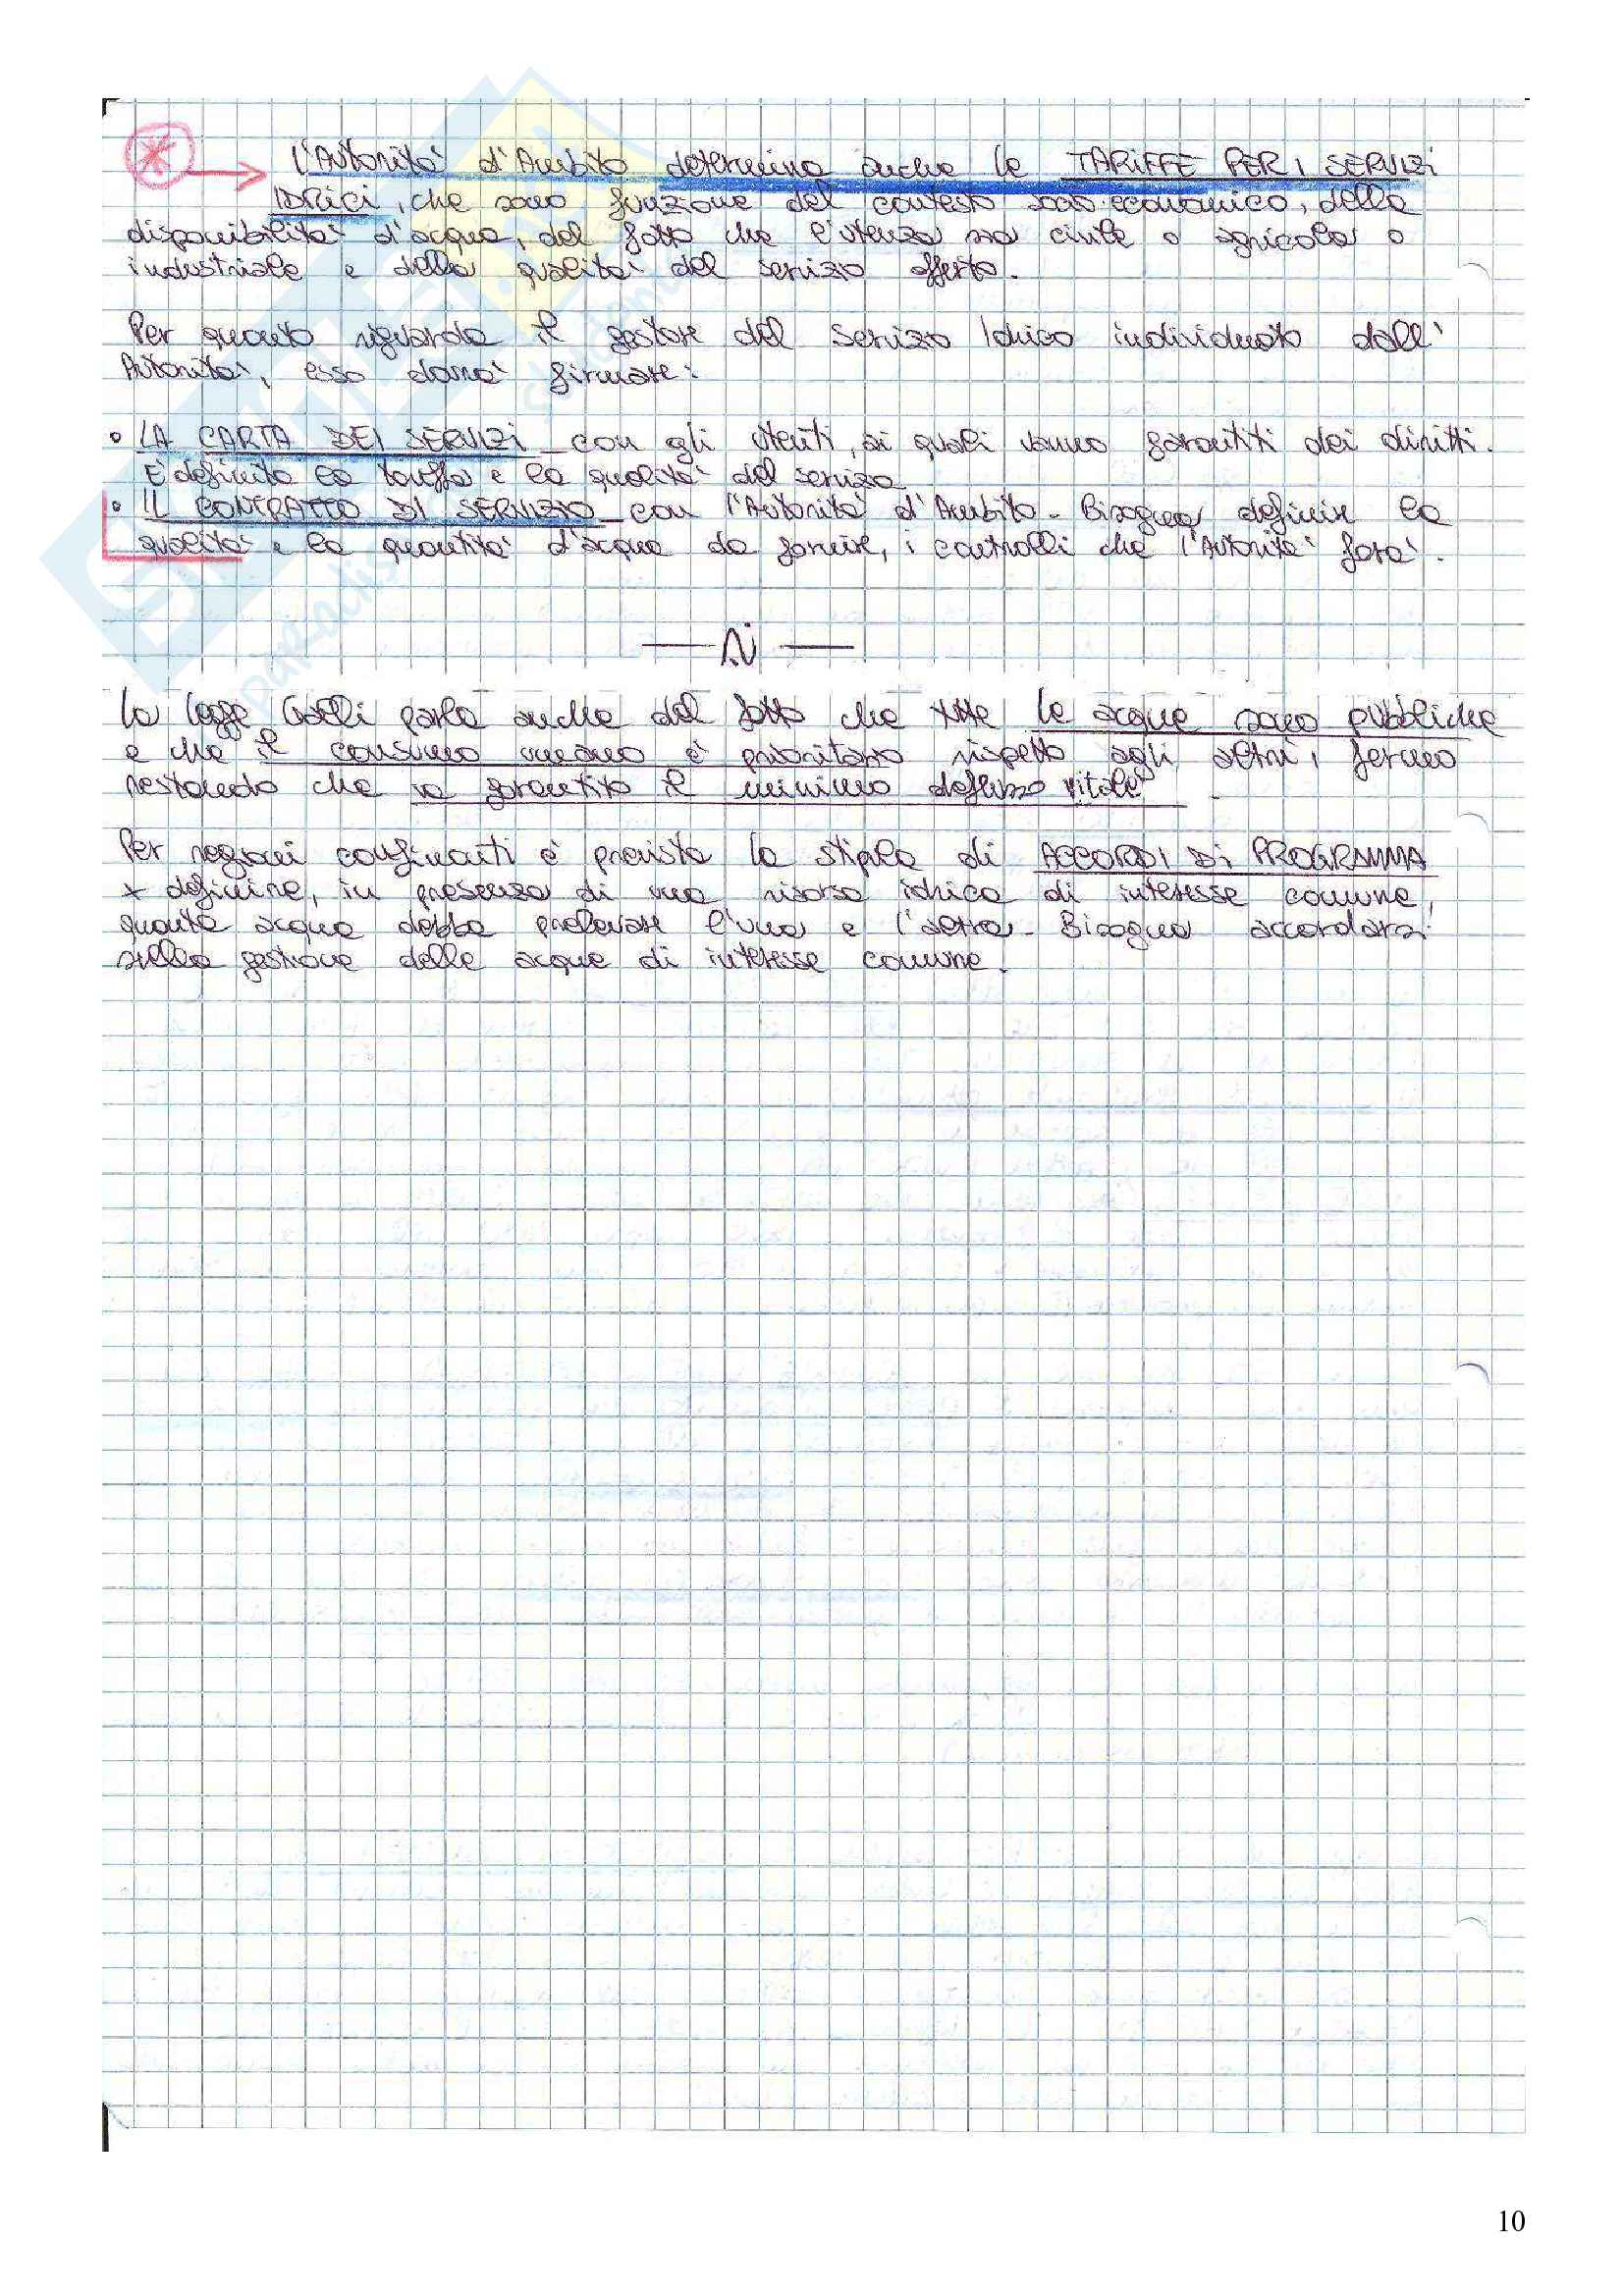 * → l'Autorità d'Ambito determina anche le TARIFFE PER I SERVIZI
IDRICI, che sono funzione del contesto socio-economico, della
disponibilità d'acqua, del fatto che l'utenza sia civile o agricola o
industriale e della qualità del servizio offerto.
Per quanto riguarda il gestore del Servizio Idrico individuato dall'
Autorità, esso dovrà firmare:
• LA CARTA DEI SERVIZI con gli utenti, ai quali vanno garantiti dei diritti.
E' definita la tariffa e la qualità del servizio
• IL CONTRATTO DI SERVIZIO con l'Autorità d'Ambito. Bisogna definire la
qualità e la quantità d'acqua da fornire, i controlli che l'Autorità farà.
La legge Galli parla anche del fatto che tutte le acque sono pubbliche
e che il consumo umano è prioritario rispetto agli altri, fermo
restando che va garantito il minimo deflusso vitale
Per regioni confinanti è prevista la stipula di ACCORDI DI PROGRAMMA
x definire, in presenza di una risorsa idrica di interesse comune,
quanta acqua debba prelevare l'una e l'altra. Bisogna accordarsi
sulla gestione delle acque di interesse comune.
10